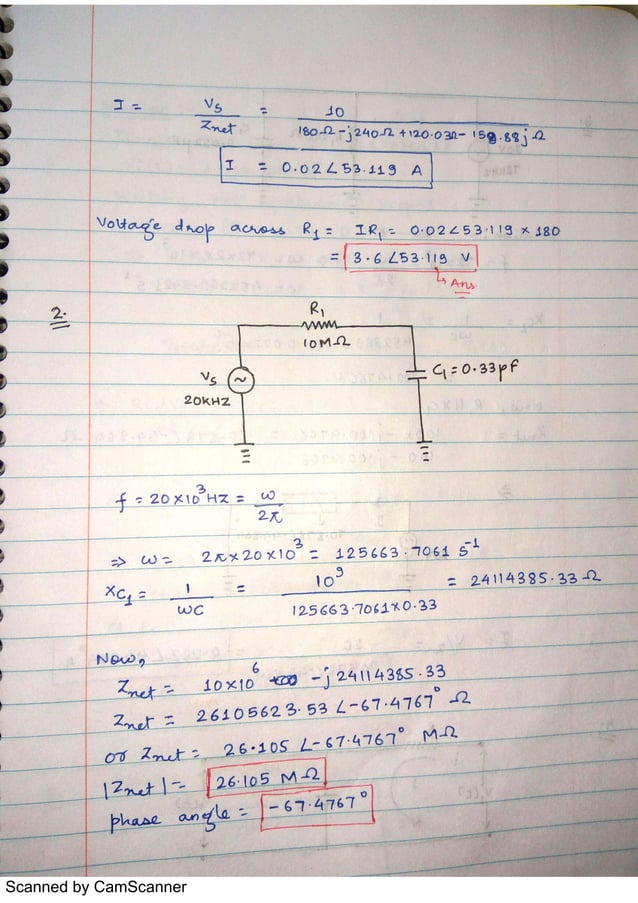 I = Vs / Znet = 10 / 180Ω-j240Ω+120.03Ω-159.88jΩ
I = 0.02∠53.119 A
Voltage drop across R1 = IR1 = 0.02∠53.119 × 180
= 3.6∠53.119 V
↳ Ans
2.
R1
10MΩ
Vs
20KHZ
C1 = 0.33pF
f = 20×10³HZ = ω / 2π
⇒ ω = 2π×20×10³ = 125663.7061 s⁻¹
XC1 = 1 / WC = 10⁹ / 125663.7061×0.33 = 24114385.33 Ω
Now,
Znet = 10×10⁶ -j24114385.33
Znet = 26105623.53 ∠-67.4767° Ω
or Znet = 26.105 ∠-67.4767° MΩ
|Znet| = 26.105 MΩ
phase angle = -67.4767°
Scanned by CamScanner